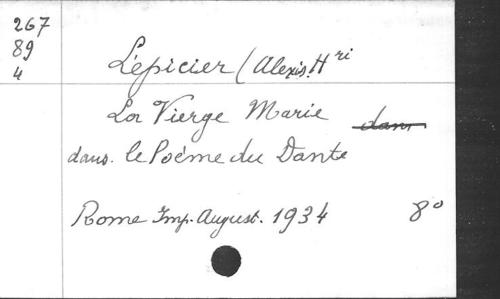 267
89
4
Lépicier (Alexis. Hri
La Vierge Marie dans
dans. le Poéme du Dante
Rome Imp. August. 1934 8°